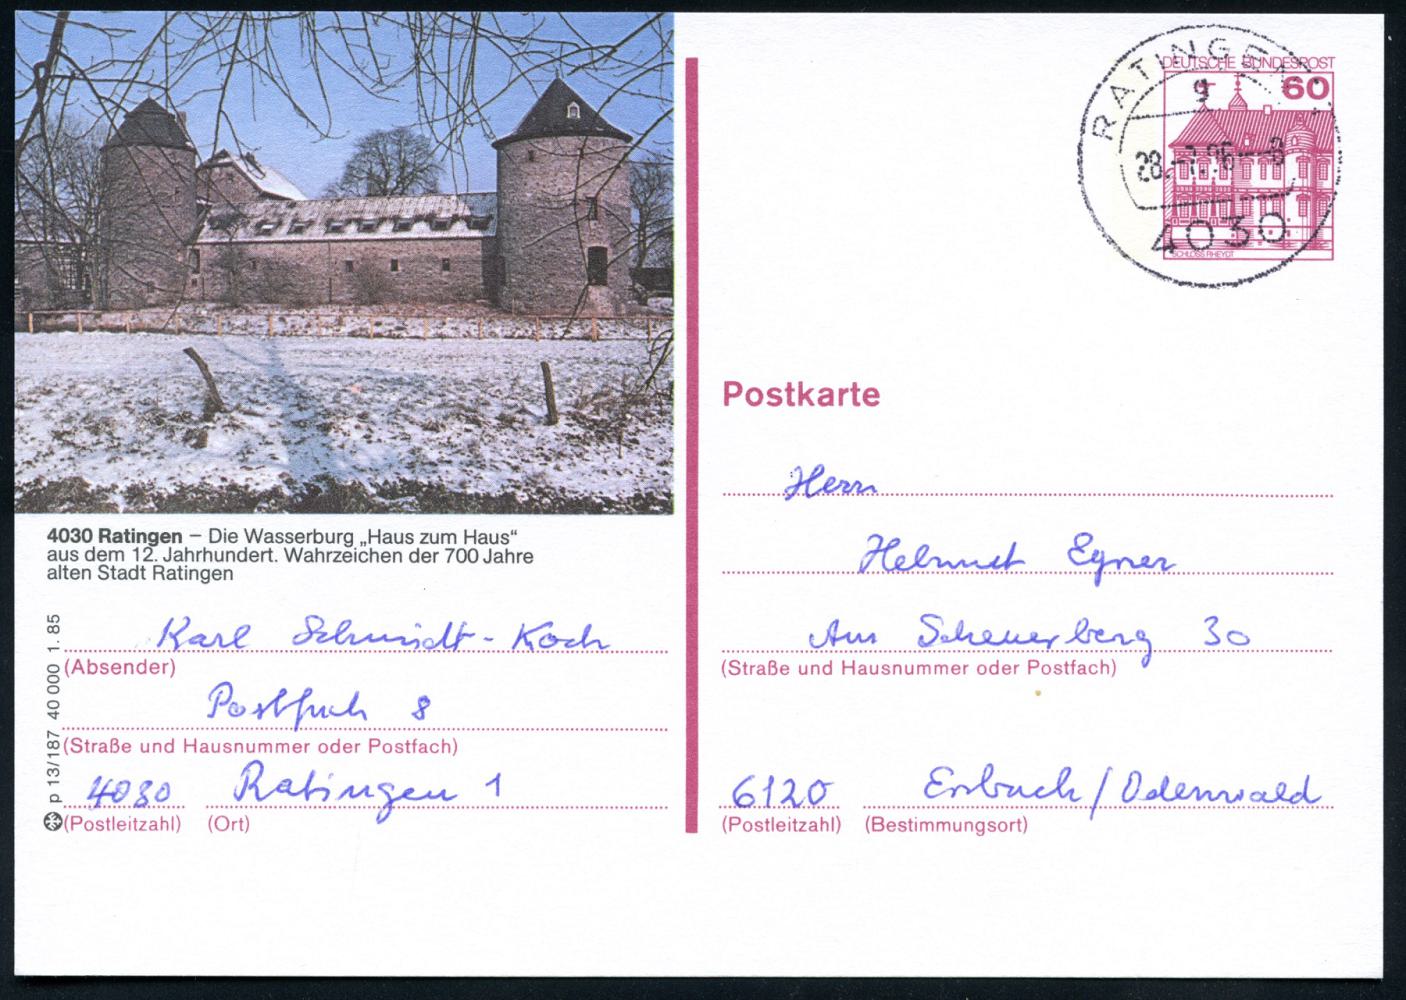 4030 Ratingen – Die Wasserburg „Haus zum Haus“
aus dem 12. Jahrhundert. Wahrzeichen der 700 Jahre
alten Stadt Ratingen
Karl Schmidt-Koch
(Absender)
Postfach 8
(Straße und Hausnummer oder Postfach)
4030 Ratingen 1
(Postleitzahl) (Ort)
p 13/187 40 000 1.85
DEUTSCHE BUNDESPOST
60
SCHLOSS RHEYDT
RATINGEN 1
g
4030
Postkarte
Herrn
Helmut Egner
Am Scheuerberg 30
(Straße und Hausnummer oder Postfach)
6120 Erbach/Odenwald
(Postleitzahl) (Bestimmungsort)